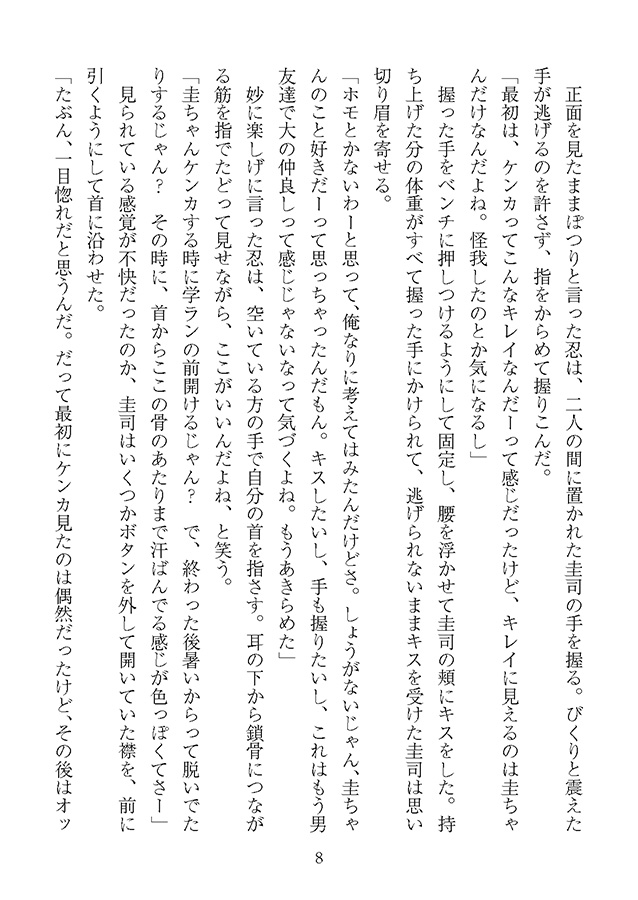 正面を見たままぽつりと言った忍は、二人の間に置かれた圭司の手を握る。びくりと震えた
手が逃げるのを許さず、指をからめて握りこんだ。
「最初は、ケンカってこんなキレイなんだーって感じだったけど、キレイに見えるのは圭ちゃ
んだけなんだよね。怪我したのとか気になるし」
　握った手をベンチに押しつけるようにして固定し、腰を浮かせて圭司の頬にキスをした。持
ち上げた分の体重がすべて握った手にかけられて、逃げられないままキスを受けた圭司は思い
切り眉を寄せる。
「ホモとかないわーと思って、俺なりに考えてはみたんだけどさ。しょうがないじゃん、圭ちゃ
んのこと好きだーって思っちゃったんだもん。キスしたいし、手も握りたいし、これはもう男
友達で大の仲良しって感じじゃないなって気づくよね。もうあきらめた」
　妙に楽しげに言った忍は、空いている方の手で自分の首を指さす。耳の下から鎖骨につなが
る筋を指でたどって見せながら、ここがいいんだよね、と笑う。
「圭ちゃんケンカする時に学ランの前開けるじゃん？　で、終わった後暑いからって脱いでた
りするじゃん？　その時に、首からここの骨のあたりまで汗ばんでる感じが色っぽくてさー」
　見られている感覚が不快だったのか、圭司はいくつかボタンを外して開いていた襟を、前に
引くようにして首に沿わせた。
「たぶん、一目惚れだと思うんだ。だって最初にケンカ見たのは偶然だったけど、その後はオッ
8